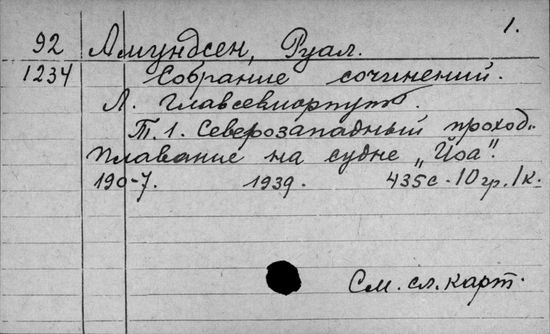 1.
92 Амундсен, Руал.
1234 Собрание сочинений.
Л. Главсевморпуть.
Т. 1. Северозападный проход.
Плавание на судне „Йоа".
190-7. 1939. 435 с. 10 гр. 1 к.
См. сл. карт.